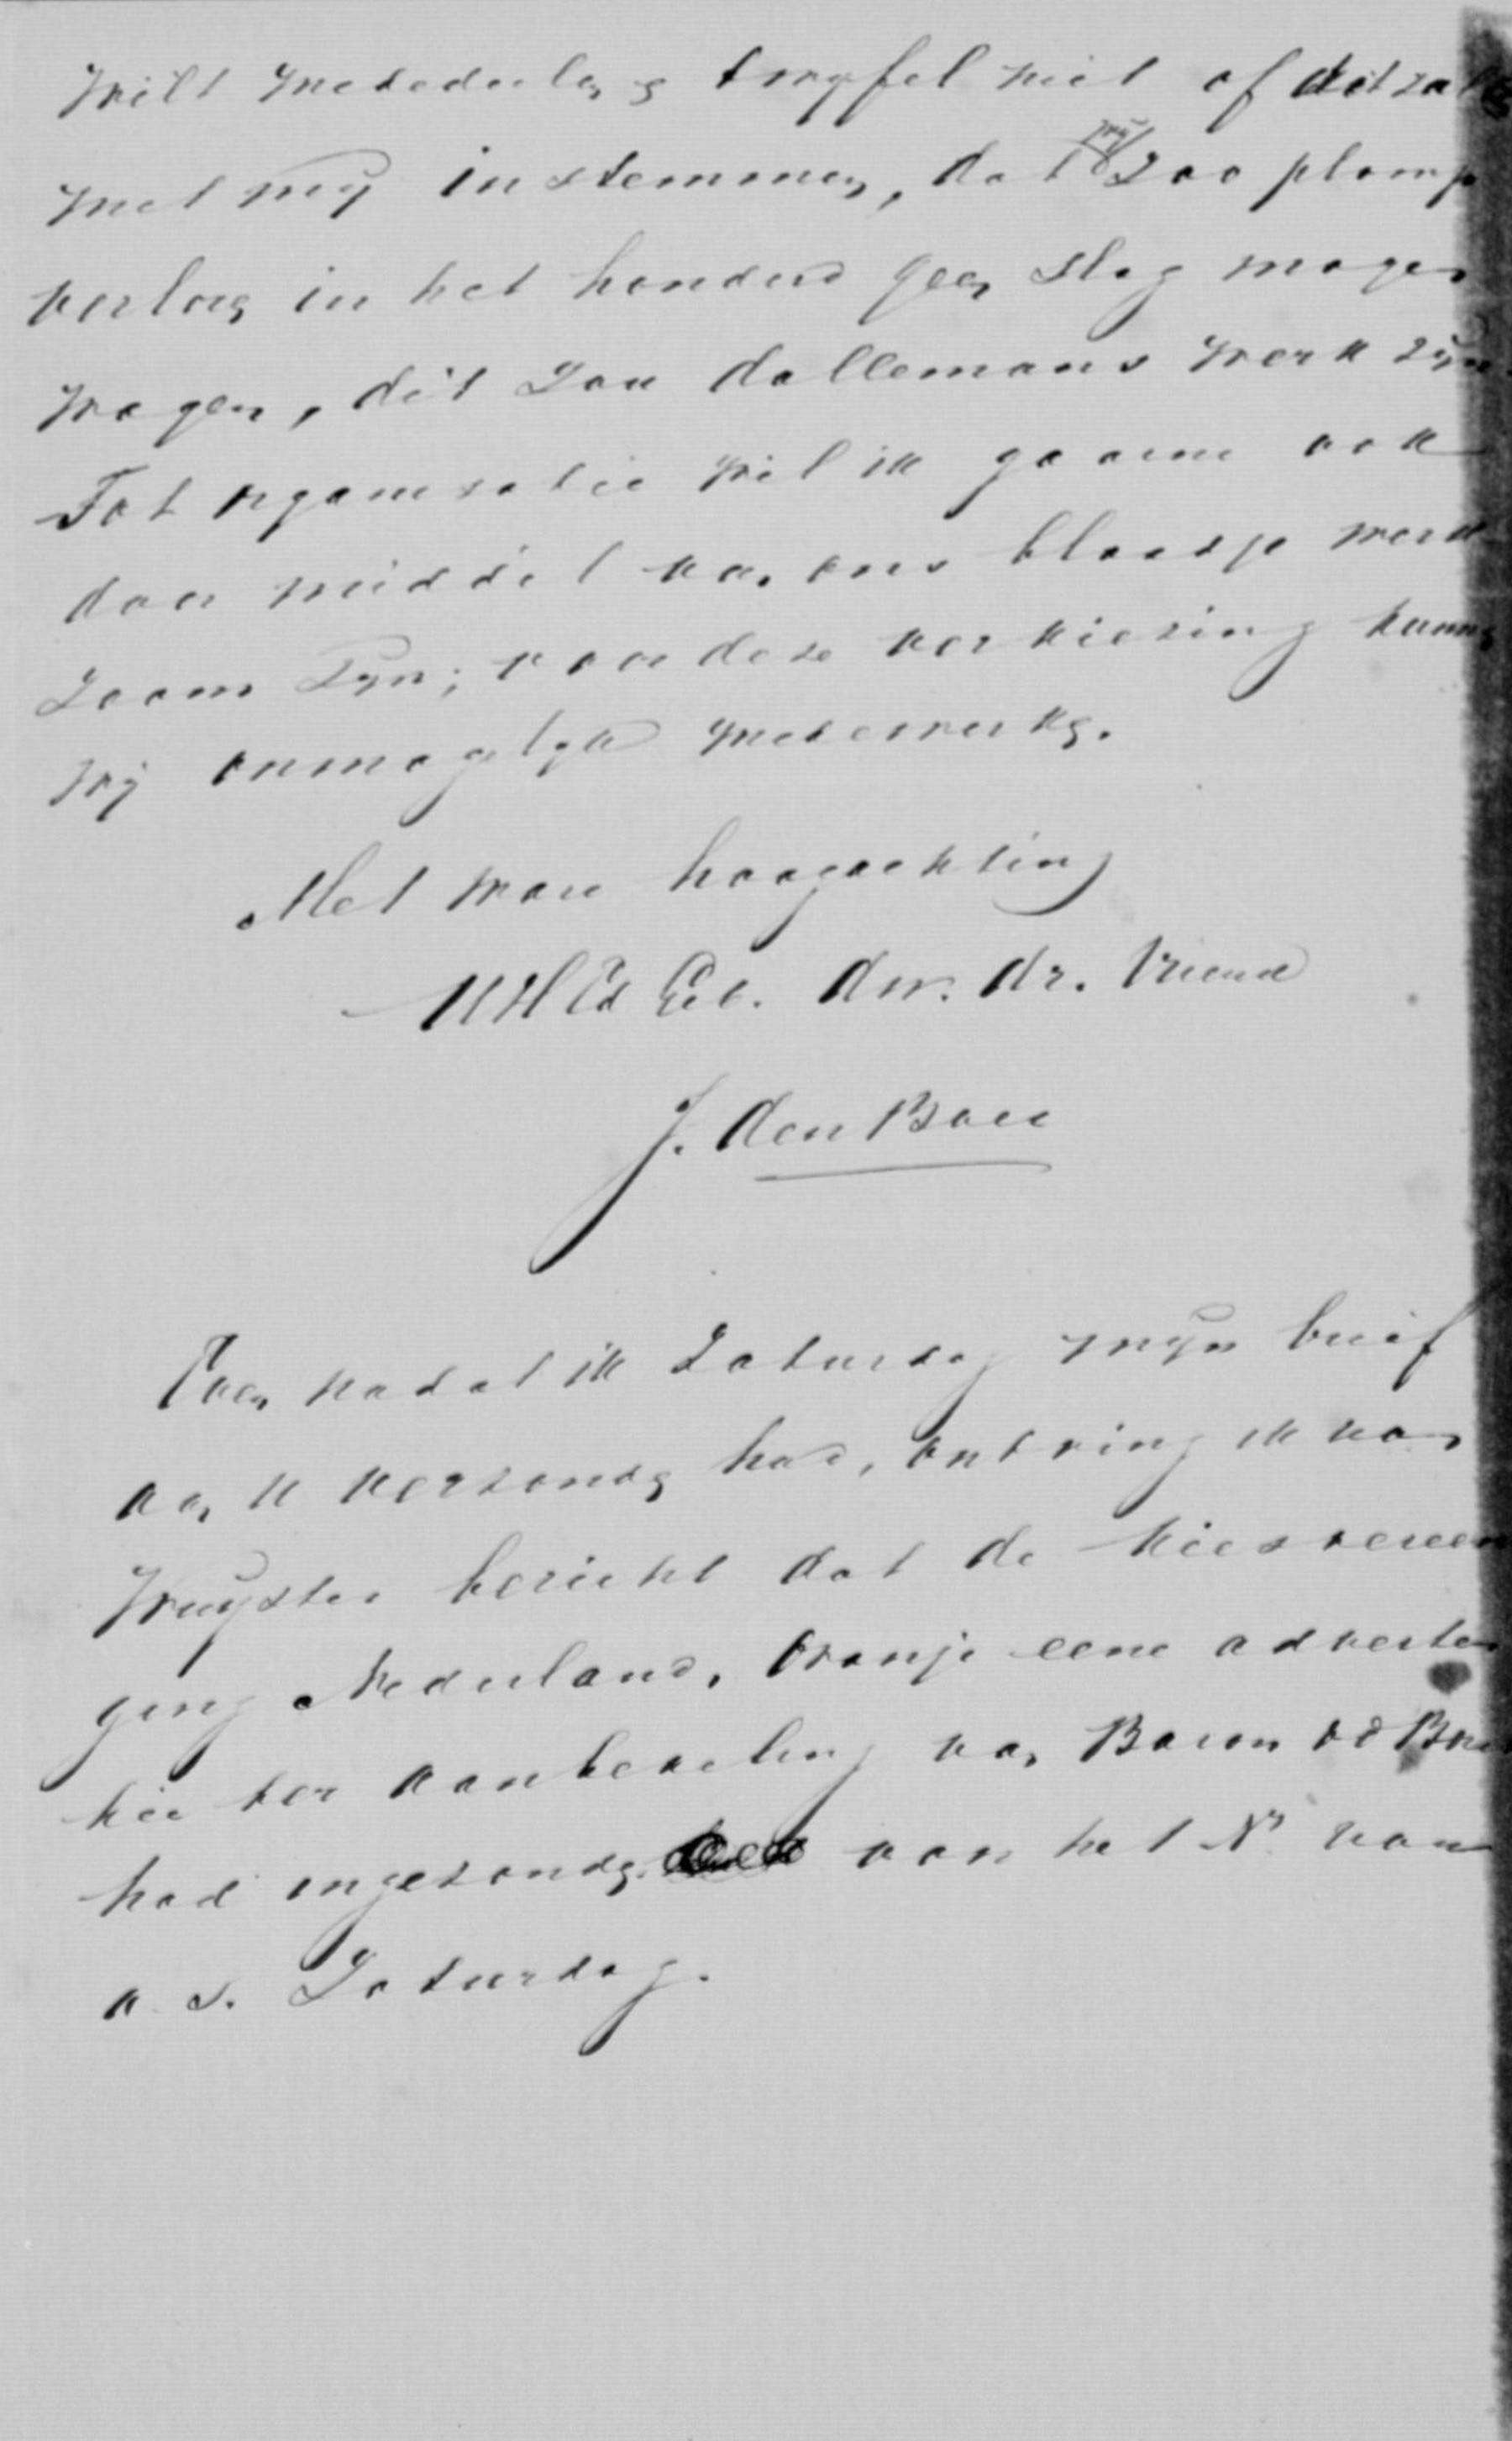 wilt mededeelen, & twyfel niet of dit zal
met my instemmen, dat wy zoo plomp
verloren in het honderd geen slag mogen
wagen, dit zou dollemans werk zyn.
Tot organisatie wil ik gaarne ook
door middel van ons blaadje werk
zaam zyn; voor deze verkiezing kunnen
wy onmogelyk medewerken.
Met ware hoogachting
UHEd Geb. dw. dr. Vriend
J. den Boer
Even nadat ik Zaturdag myn brief
aan U verzonden had, ontving ik van
Wuyster bericht dat de Kiesvereeni
ging Nederland, Oranje eene adverten
tie ter aanbeveling van Baron
had ingezonden voor het N.r van
a. s. Zaturdag.